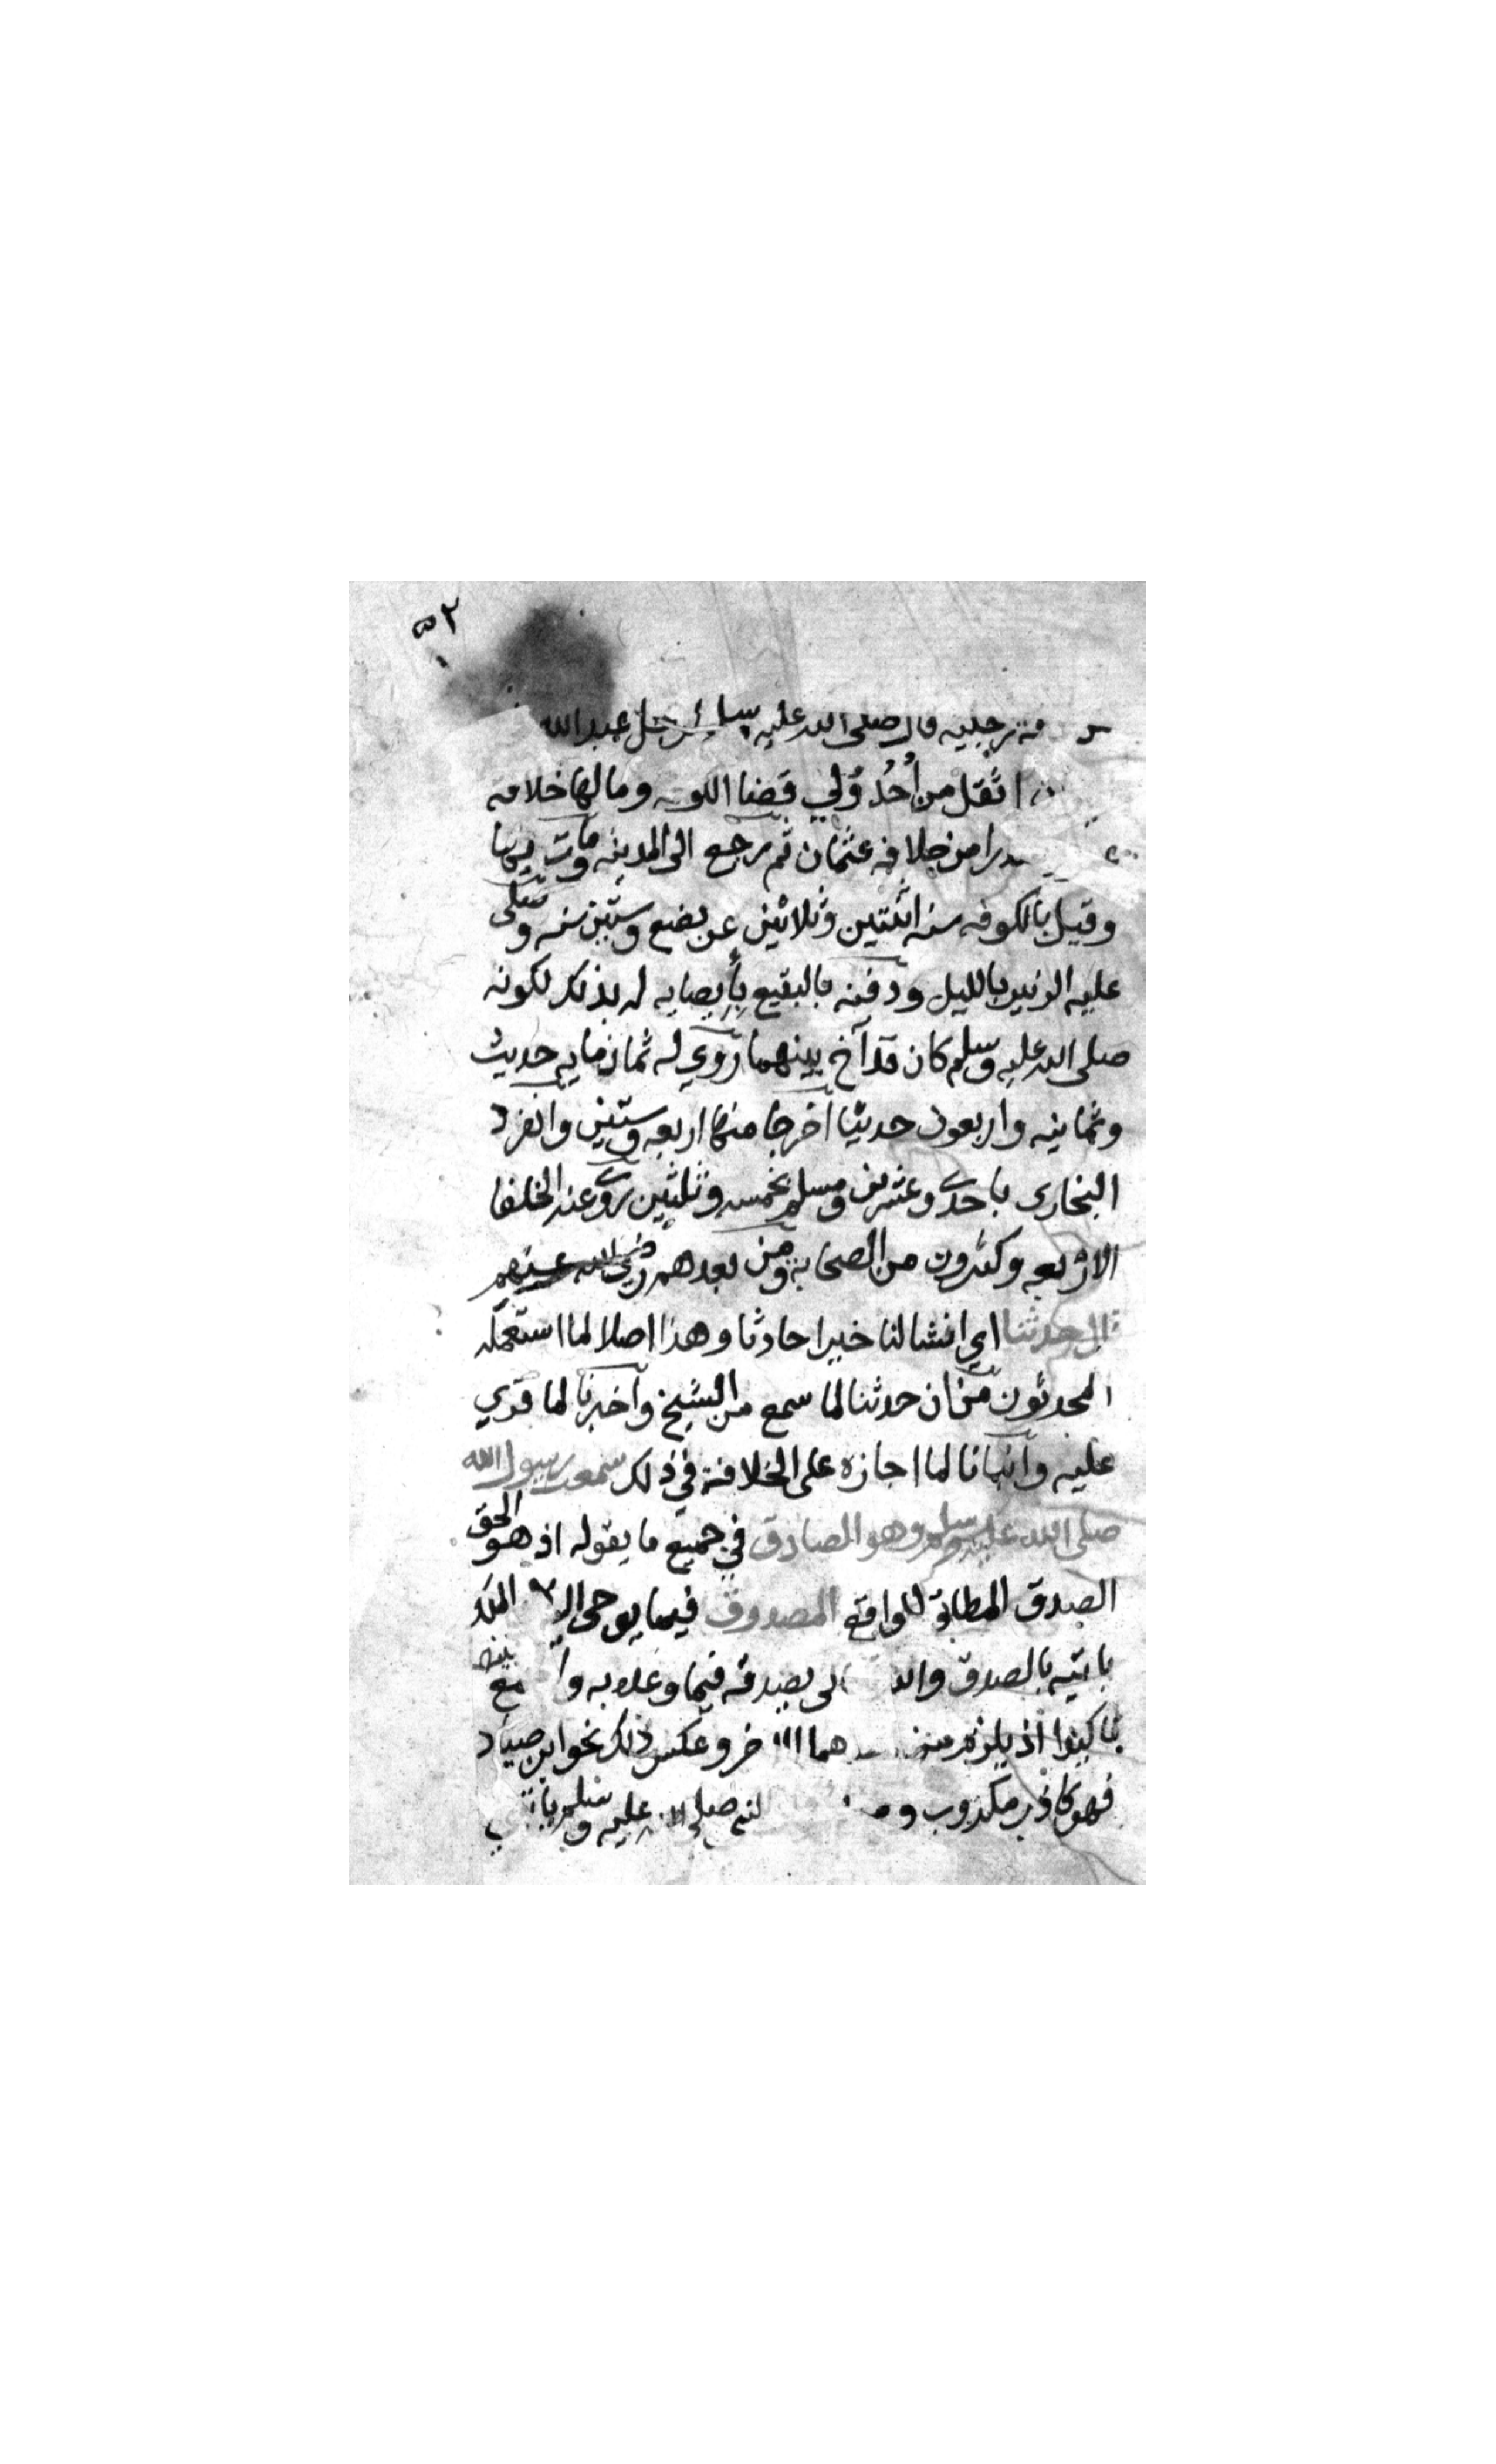 ٥٢
رجليه قال صلى الله عليه وسلم لرجل عبد الله
اثقل من أُحُد وُلي قضا الكوفه ومالها خلافه
من خلافه عثمان ثم رجع الى المدينه ومات فيها
وقيل بالكوفه سنه اثنتين وثلاثين عن بضع وستين سنه وصلى
عليه الزبير بالليل ودفنه بالبقيع بإيصايه له بذلك لكونه
صلى الله عليه وسلم كان قد آخ بينهما روي له ثمان مايه حديث
وثمانيه واربعون حديثا اخرجا منها اربعه وستين وانفرد
البخارى باحدى وعشرين ومسلم بخمسه وثلثين روى عنه الخلفا
الاربعه وكثيرون من الصحابه ومن بعدهم رضي الله عنهم
قال حدثنا اي انشا لنا خبرا حادثا وهذا اصلا لما استعمله
المحدثون من ان حدثنا لما سمع من الشيخ واخبرنا لما قري
عليه وانبانا لما اجازه على الخلافة في ذلك سمعت رسول الله
صلى الله عليه وسلم وهو الصادق في جميع ما يقوله اذ هو الحق
الصدق المطابق للواقع المصدوق فيما يوحى اليه الملك
ياتيه بالصدق والله يصدقه فيما وعده به مع بينه
تاكيدا اذ يلزم من وعكس ذلك نحو ابن صياد
فهو كاذب مكذوب صلى الله عليه وسلم